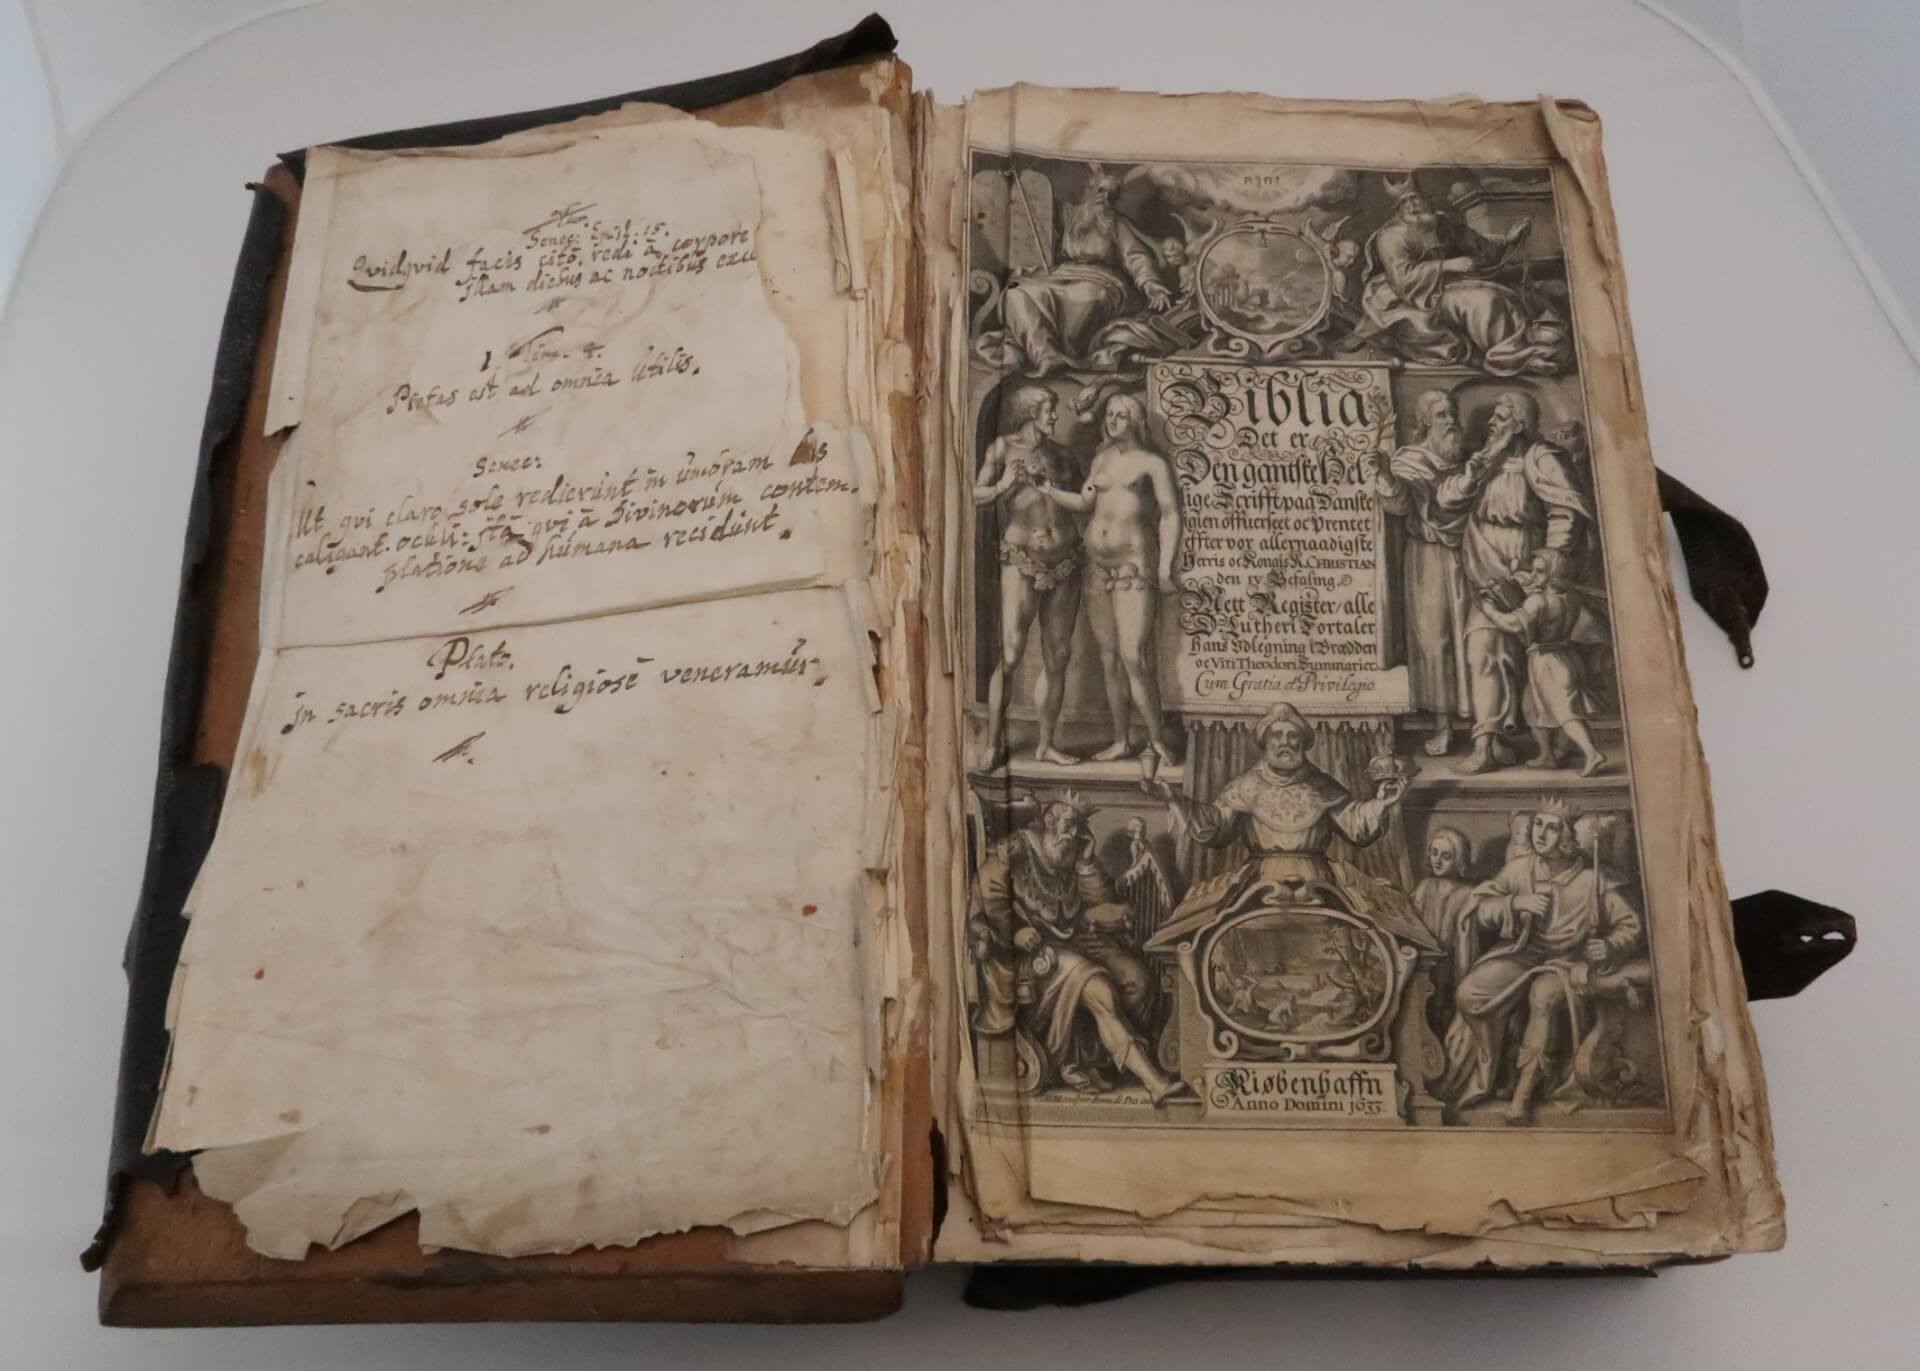 Senec: Epist: 15.
Qvidqvid facis cito redi à corpore
illam diebus ac noctibus exer
1 Tim. 4.
Pietas est ad omnia utilis.
Senec:
Ut qvi claro sole redierunt in umbram his
caligant oculi: ita qvi à Divinorum contem-
platione ad humana recidunt.
Plato.
In sacris omnia religiosè veneramur.
יהוה
Biblia
Det er
Den gantske Hel-
lige Scrifft paa Danske
igien offuerseet oc Prentet
effter vor allernaadigste
Herris oc Kongis K. CHRISTIAN
den IV Befaling
Mett Register/alle
D. Lutheri Fortaler
Hans Vdlegning i Brædden
oc Viti Theodori Summarier
Cum Gratia et Privilegio
Kiøbenhaffn
Anno Domini 1633